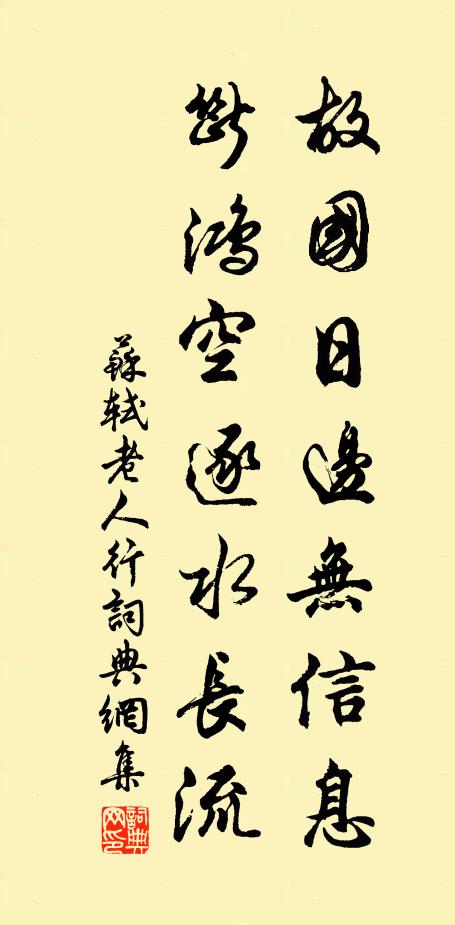 故國日邊無信息
斷鴻空逐水長流
蘇軾老人行詞典網集
詞典
网印